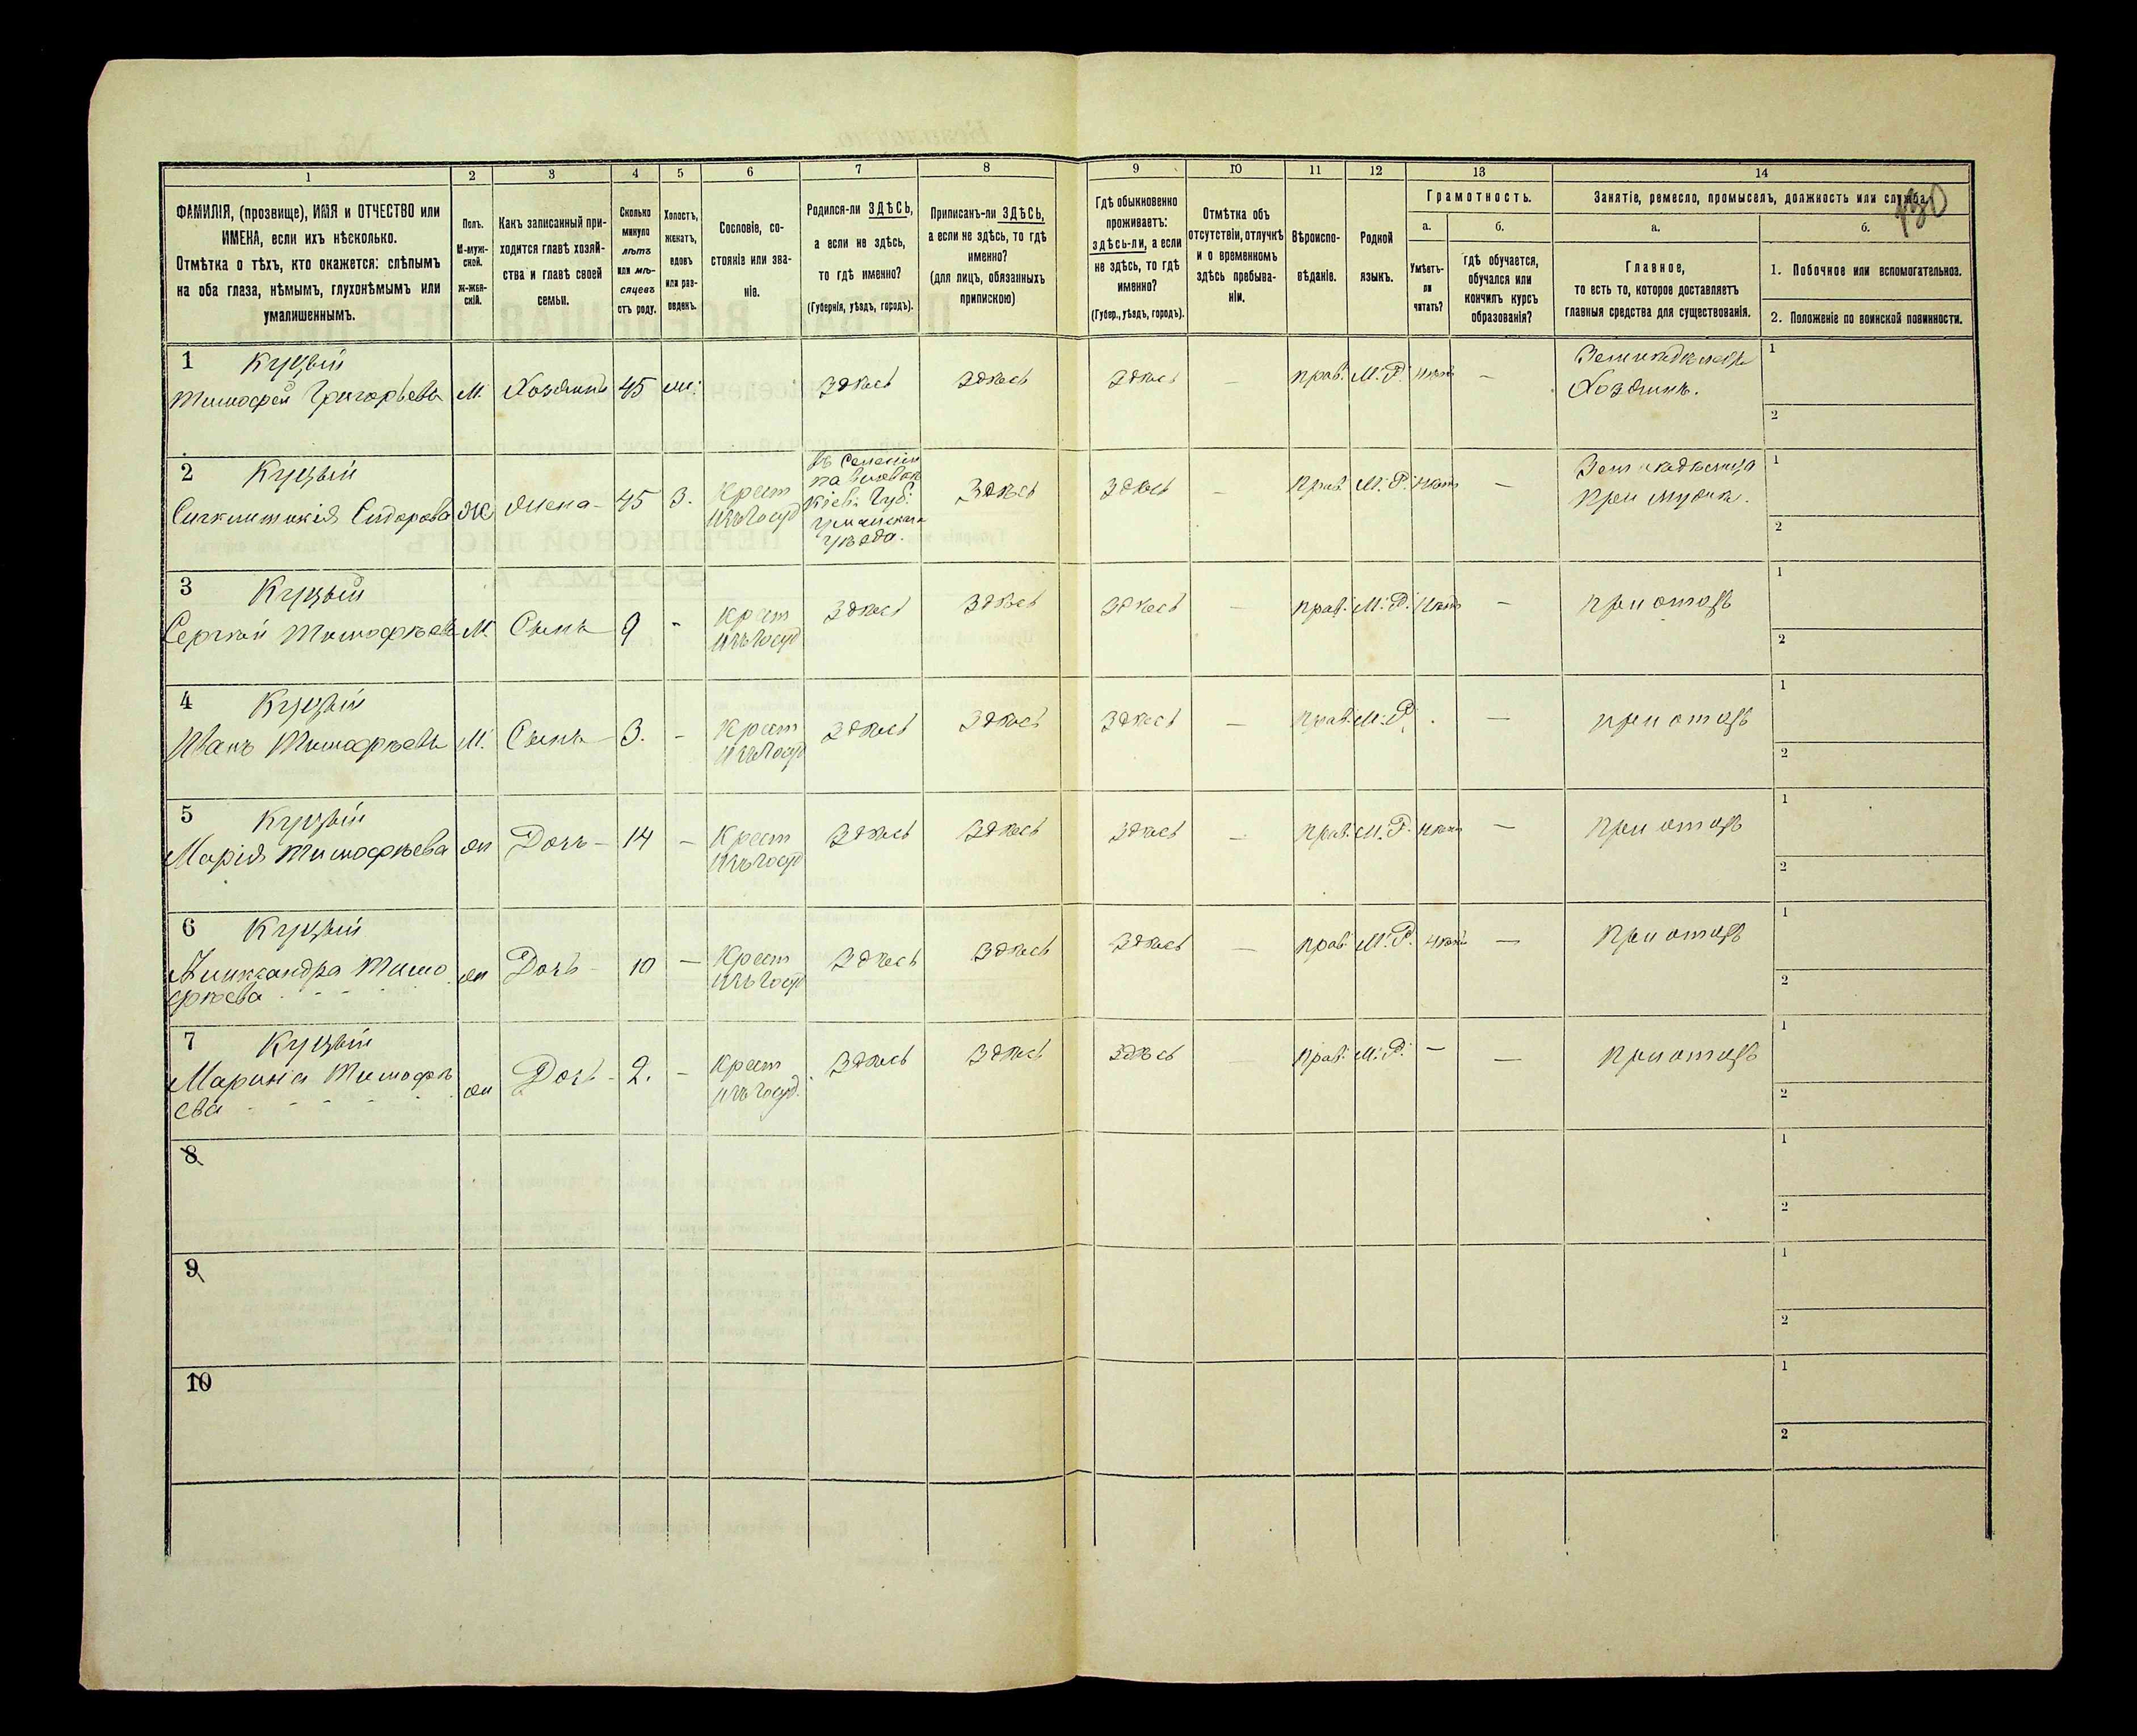 130
1
2
3
4
5
6
7
8
9
10
11
12
13
14
ФАМИЛІЯ, (прозвище), ИМЯ и ОТЧЕСТВО или
ИМЕНА, если ихъ нѣсколько.
Отмѣтка о тѣхъ, кто окажется: слѣпымъ
на оба глаза, нѣмымъ, глухонѣмымъ или
умалишеннымъ.
Полъ.
М-муж-
ской.
ж-жен-
скій.
Какъ записанный при-
ходится главѣ хозяй-
ства и главѣ своей
семьи.
Сколько
минуло
лѣтъ
или мѣ-
сяцевъ
отъ роду.
Холостъ,
женатъ,
вдовъ
или раз-
веденъ.
Сословіе, со-
стояніе или зва-
ніе.
Родился-ли ЗДѢСЬ,
а если не здѣсь,
то гдѣ именно?
(Губернія, уѣздъ, городъ).
Приписанъ-ли ЗДѢСЬ,
а если не здѣсь, то гдѣ
именно?
(для лицъ, обязанныхъ
припискою)
Гдѣ обыкновенно
проживаетъ:
здѣсь-ли, а если
не здѣсь, то гдѣ
именно?
(Губер., уѣздъ, городъ).
Отмѣтка объ
отсутствіи, отлучкѣ
и о временномъ
здѣсь пребыва-
ніи.
Вѣроиспо-
вѣданіе.
Родной
языкъ.
Грамотность.
а.
Умѣетъ-
ли
читать?
б.
гдѣ обучается,
обучался или
кончилъ курсъ
образованія?
Занятіе, ремесло, промыселъ, должность или служба.
а.
Главное,
то есть то, которое доставляетъ
главныя средства для существованія.
б.
1. Побочное или вспомогательное.
2. Положеніе по воинской повинности.
1 Куцый
Тимофей Григорьевъ М. Хозяинъ 45 Здѣсь Здѣсь Здѣсь — прав. М. Р. нѣтъ — Хозяинъ. 1
2
2 Куцый
Сидорова Ж жена 45 З. Крест Здѣсь Здѣсь — Прав. М. Р. нѣтъ — 1
изъ Госуд Кіев. Губ: при мужѣ.
Уманскаго
уѣзда. 2
3 Куцый
Сергѣй Тимофѣевъ М. Сынъ 9 - Крест Здѣсь Здѣсь Здѣсь — прав. М. Р. нѣтъ — при отцѣ 1
изъ Госуд 2
4 Куцый
Иванъ Тимофѣевъ М. Сынъ 3. - Крест Здѣсь Здѣсь Здѣсь — прав. М. Р. — при отцѣ 1
изъ Госуд 2
5 Куцый
Марія Тимофѣева ж Дочь 14 - Крест Здѣсь Здѣсь Здѣсь — прав. М. Р. нѣтъ — при отцѣ 1
изъ Госуд 2
6 Куцый
Александра Тимо ж Дочь 10 - Крест Здѣсь Здѣсь Здѣсь — прав. М. Р. нѣтъ — при отцѣ 1
фѣева изъ Госуд 2
7 Куцый
Марина Тимофѣ ж Дочь 2. - Крест Здѣсь Здѣсь Здѣсь — прав. М. Р. — — при отцѣ 1
ева изъ Госуд. 2
8 1
2
9 1
2
10 1
2